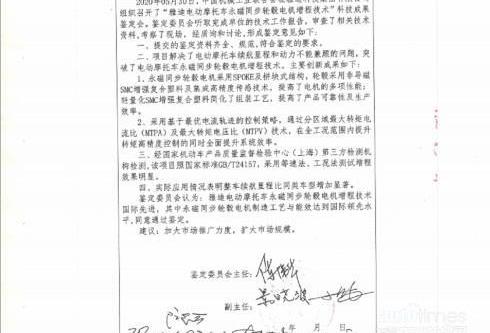 组织召开了“雅迪电动摩托车永磁同步轮毂电机增程技术”科技成果
鉴定会。鉴定委员会听取完成单位的技术工作报告，审查了相关技术
资料，考察了现场，经质询和讨论，形成鉴定意见如下：
一、提交的鉴定资料齐全、规范，符合鉴定的要求。
二、项目解决了电动摩托车续航里程和动力不能兼顾的问题，突
破了电动摩托车永磁同步轮毂电机增程技术。主要创新成果如下：
1、永磁同步轮毂电机采用SPOKE及拼块式结构，轮毂采用非导磁
SMC增强复合塑料及集成高精度传感技术，提高了电机的多项性能；
轻量化SMC增强复合塑料简化了组装工艺，提高了产品可靠性及生产
效率。
2、采用基于最优电流轨迹的控制策略，通过分区域最大转矩电
流比（MTPA）及最大转矩电压比（MTPV）技术，在全工况范围内提升
转矩高精度控制的同时全面提升系统效率。
三、经国家机动车产品质量监督检验中心（上海）第三方检测机
构检测，该项目照国家标准GB/T24157，采用等速法、工况法测试增程
效果明显。
四、实际应用情况表明整车续航里程比同类车型增加显著。
鉴定委员会认为：雅迪电动摩托车永磁同步轮毂电机增程技术
国际先进，其中永磁同步轮毂电机制造工艺与能效达到国际领先水
平，同意通过鉴定。
建议：加大市场推广力度，扩大市场规模。
鉴定委员会主任：
副主任：
年 月 日